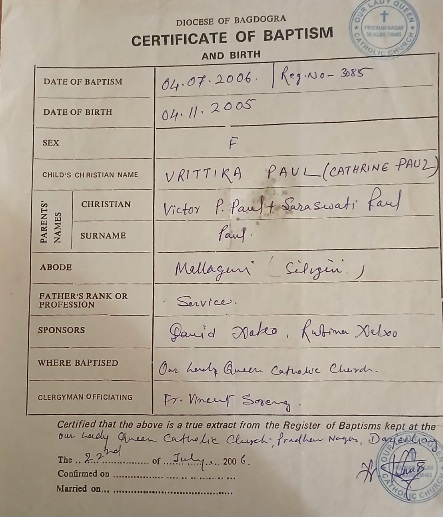 DIOCESE OF BAGDOGRA
CERTIFICATE OF BAPTISM
AND BIRTH
OUR LADY QUEEN CATHOLIC CHURCH
PRADHAN NAGAR
DATE OF BAPTISM 04.07.2006. Reg.No- 3085
DATE OF BIRTH 04.11.2005
SEX F
CHILD'S CHRISTIAN NAME VRITTIKA PAUL (CATHRINE PAUL)
PARENTS' NAMES
CHRISTIAN Victor P. Paul + Saraswati Paul
SURNAME Paul.
ABODE Mallaguri (Siliguri)
FATHER'S RANK OR PROFESSION Service.
SPONSORS David, Rubina
WHERE BAPTISED Our Lady Queen Catholic Church.
CLERGYMAN OFFICIATING Fr. Vincent Soreng.
Certified that the above is a true extract from the Register of Baptisms kept at the
Our Lady Queen Catholic Church, Pradhan Nagar, Darjeeling
The .. 22nd of July 2006.
Confirmed on
Married on